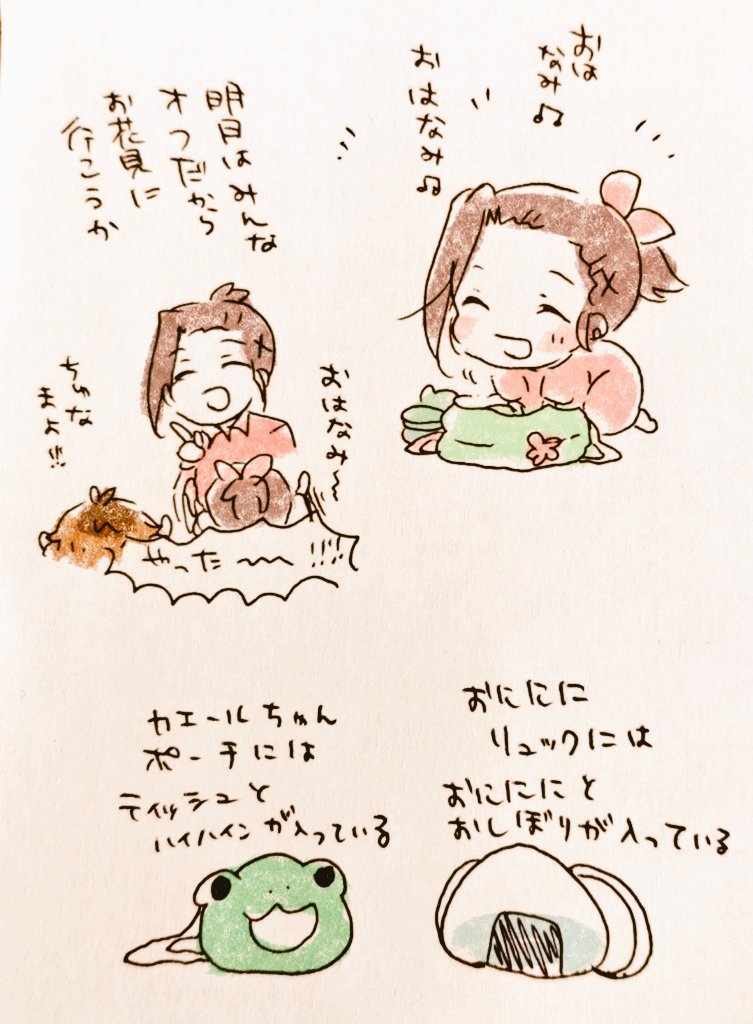 おは
なみ♫
おはなみ♫
明日はみんな
オフだから
お花見に
行こうか
おはなみ〜
ちゅな
まよ!!
やった〜〜!!!!
カエールちゃん
ポーチには
ティッシュと
ハイハインが入っている
おににに
リュックには
おにににと
おしぼりが入っている